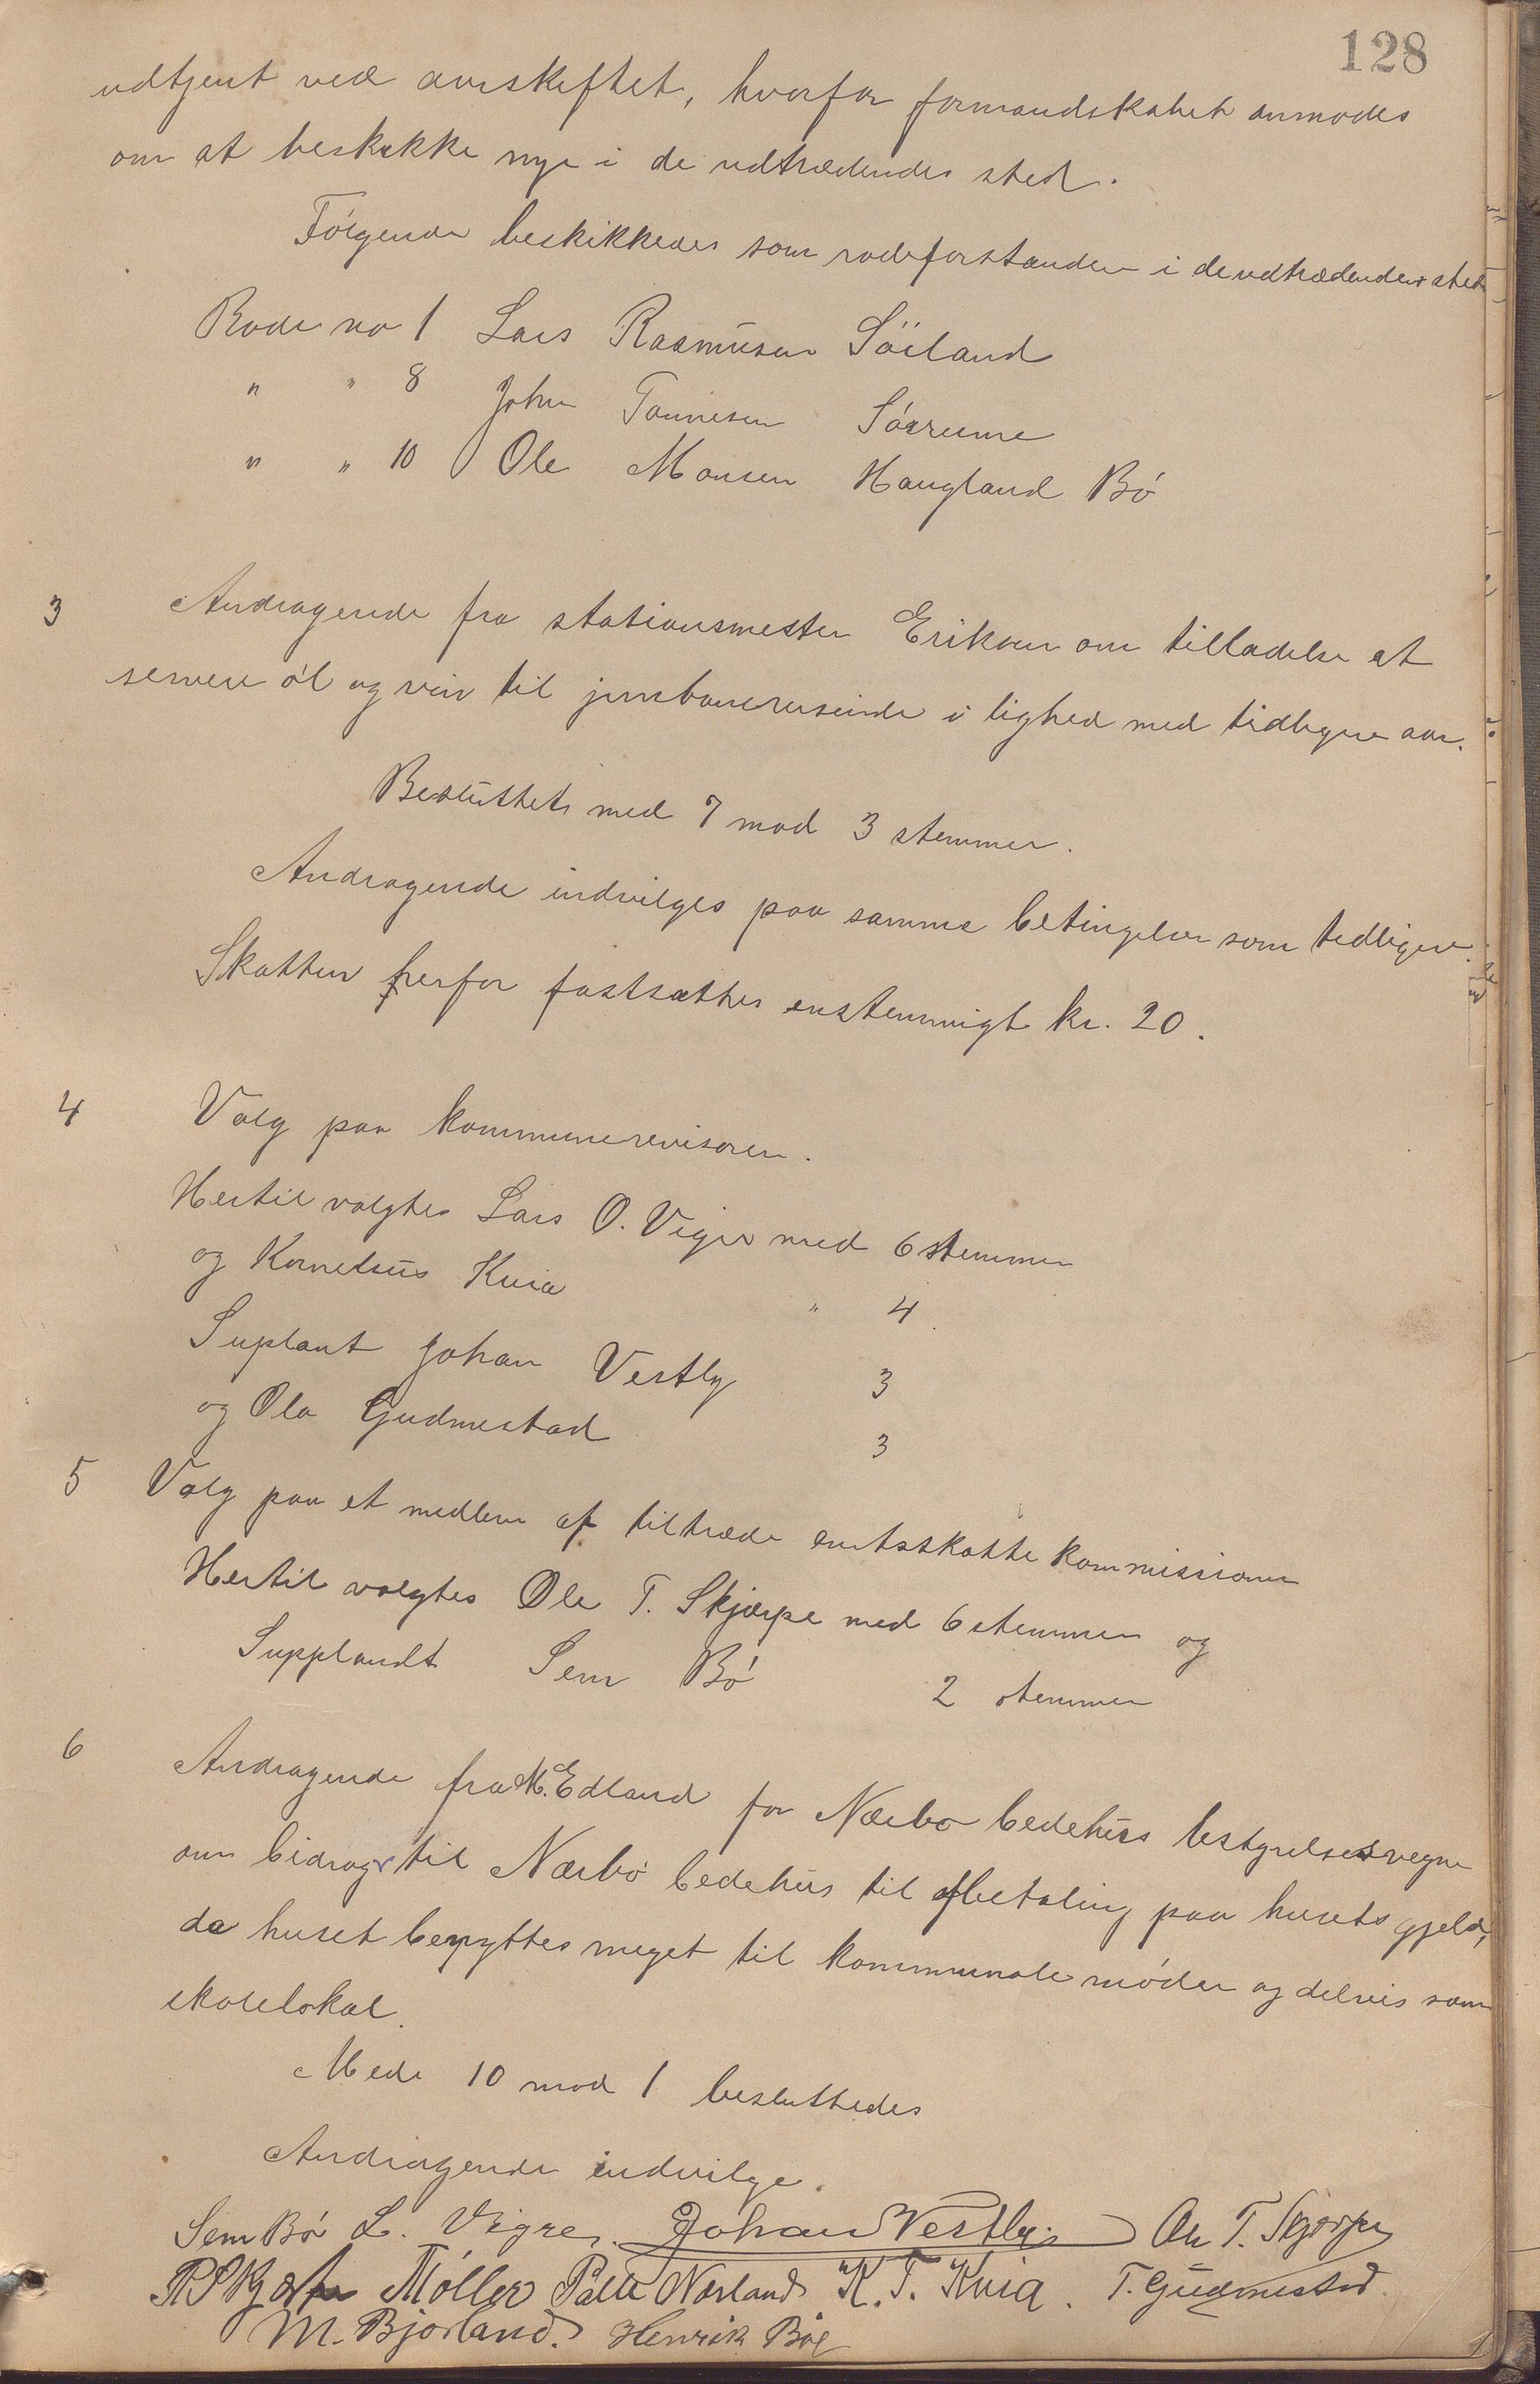 128
udtjent ved aarskiftet, hvorfor formandskabet anmodes
om at beskikke nye i de udtrædendes sted.
Følgende beskikkedes som rodeforstander i de udtrædendes sted
Rode no 1 Lars Rasmusen Söiland
" " 8 John Tønnesen
" " 10 Ole Monsen Haugland Bö
3 Andragende fra stationsmester Eriksen om tilladelse at
servere øl og vin til jernbanereisende i lighed med tidligere aar.
Besluttet med 7 mod 3 stemmer.
Andragende indvilges paa samme betingelser som tidligere.
Skatten herfor fastsættes enstemmigt kr. 20.
4 Valg paa kommunerevisorer.
Hertil valgtes Lars O. Vigre med 6 stemmer
og Kornelius Kvia " 4
Suplant Johan Vestly 3
og Ola Gudmestad 3
5 Valg paa et medlem af tiltræde amtsskattekommissionen
Hertil valgtes Ole T. Skjærpe med 6 stemmer og
Supplandt Sem Bö 2 stemmer
6 Andragende fra M. Edland for Nærbo bedehus bestyrelses vegne
om bidrag til Nærbö bedehus til afbetaling paa husets gjeld,
da huset benyttes meget til kommunale møder og delvis som
skolelokal.
Mede 10 mod 1 besluttedes
Andragende indvilge.
Sem Bö L. Vigre. Johan Vestly. Ole T. Skjærpe
Möller Palle Nærland K. T. Kvia. T. Gudmestad.
M. Bjorland. Henrik Böe